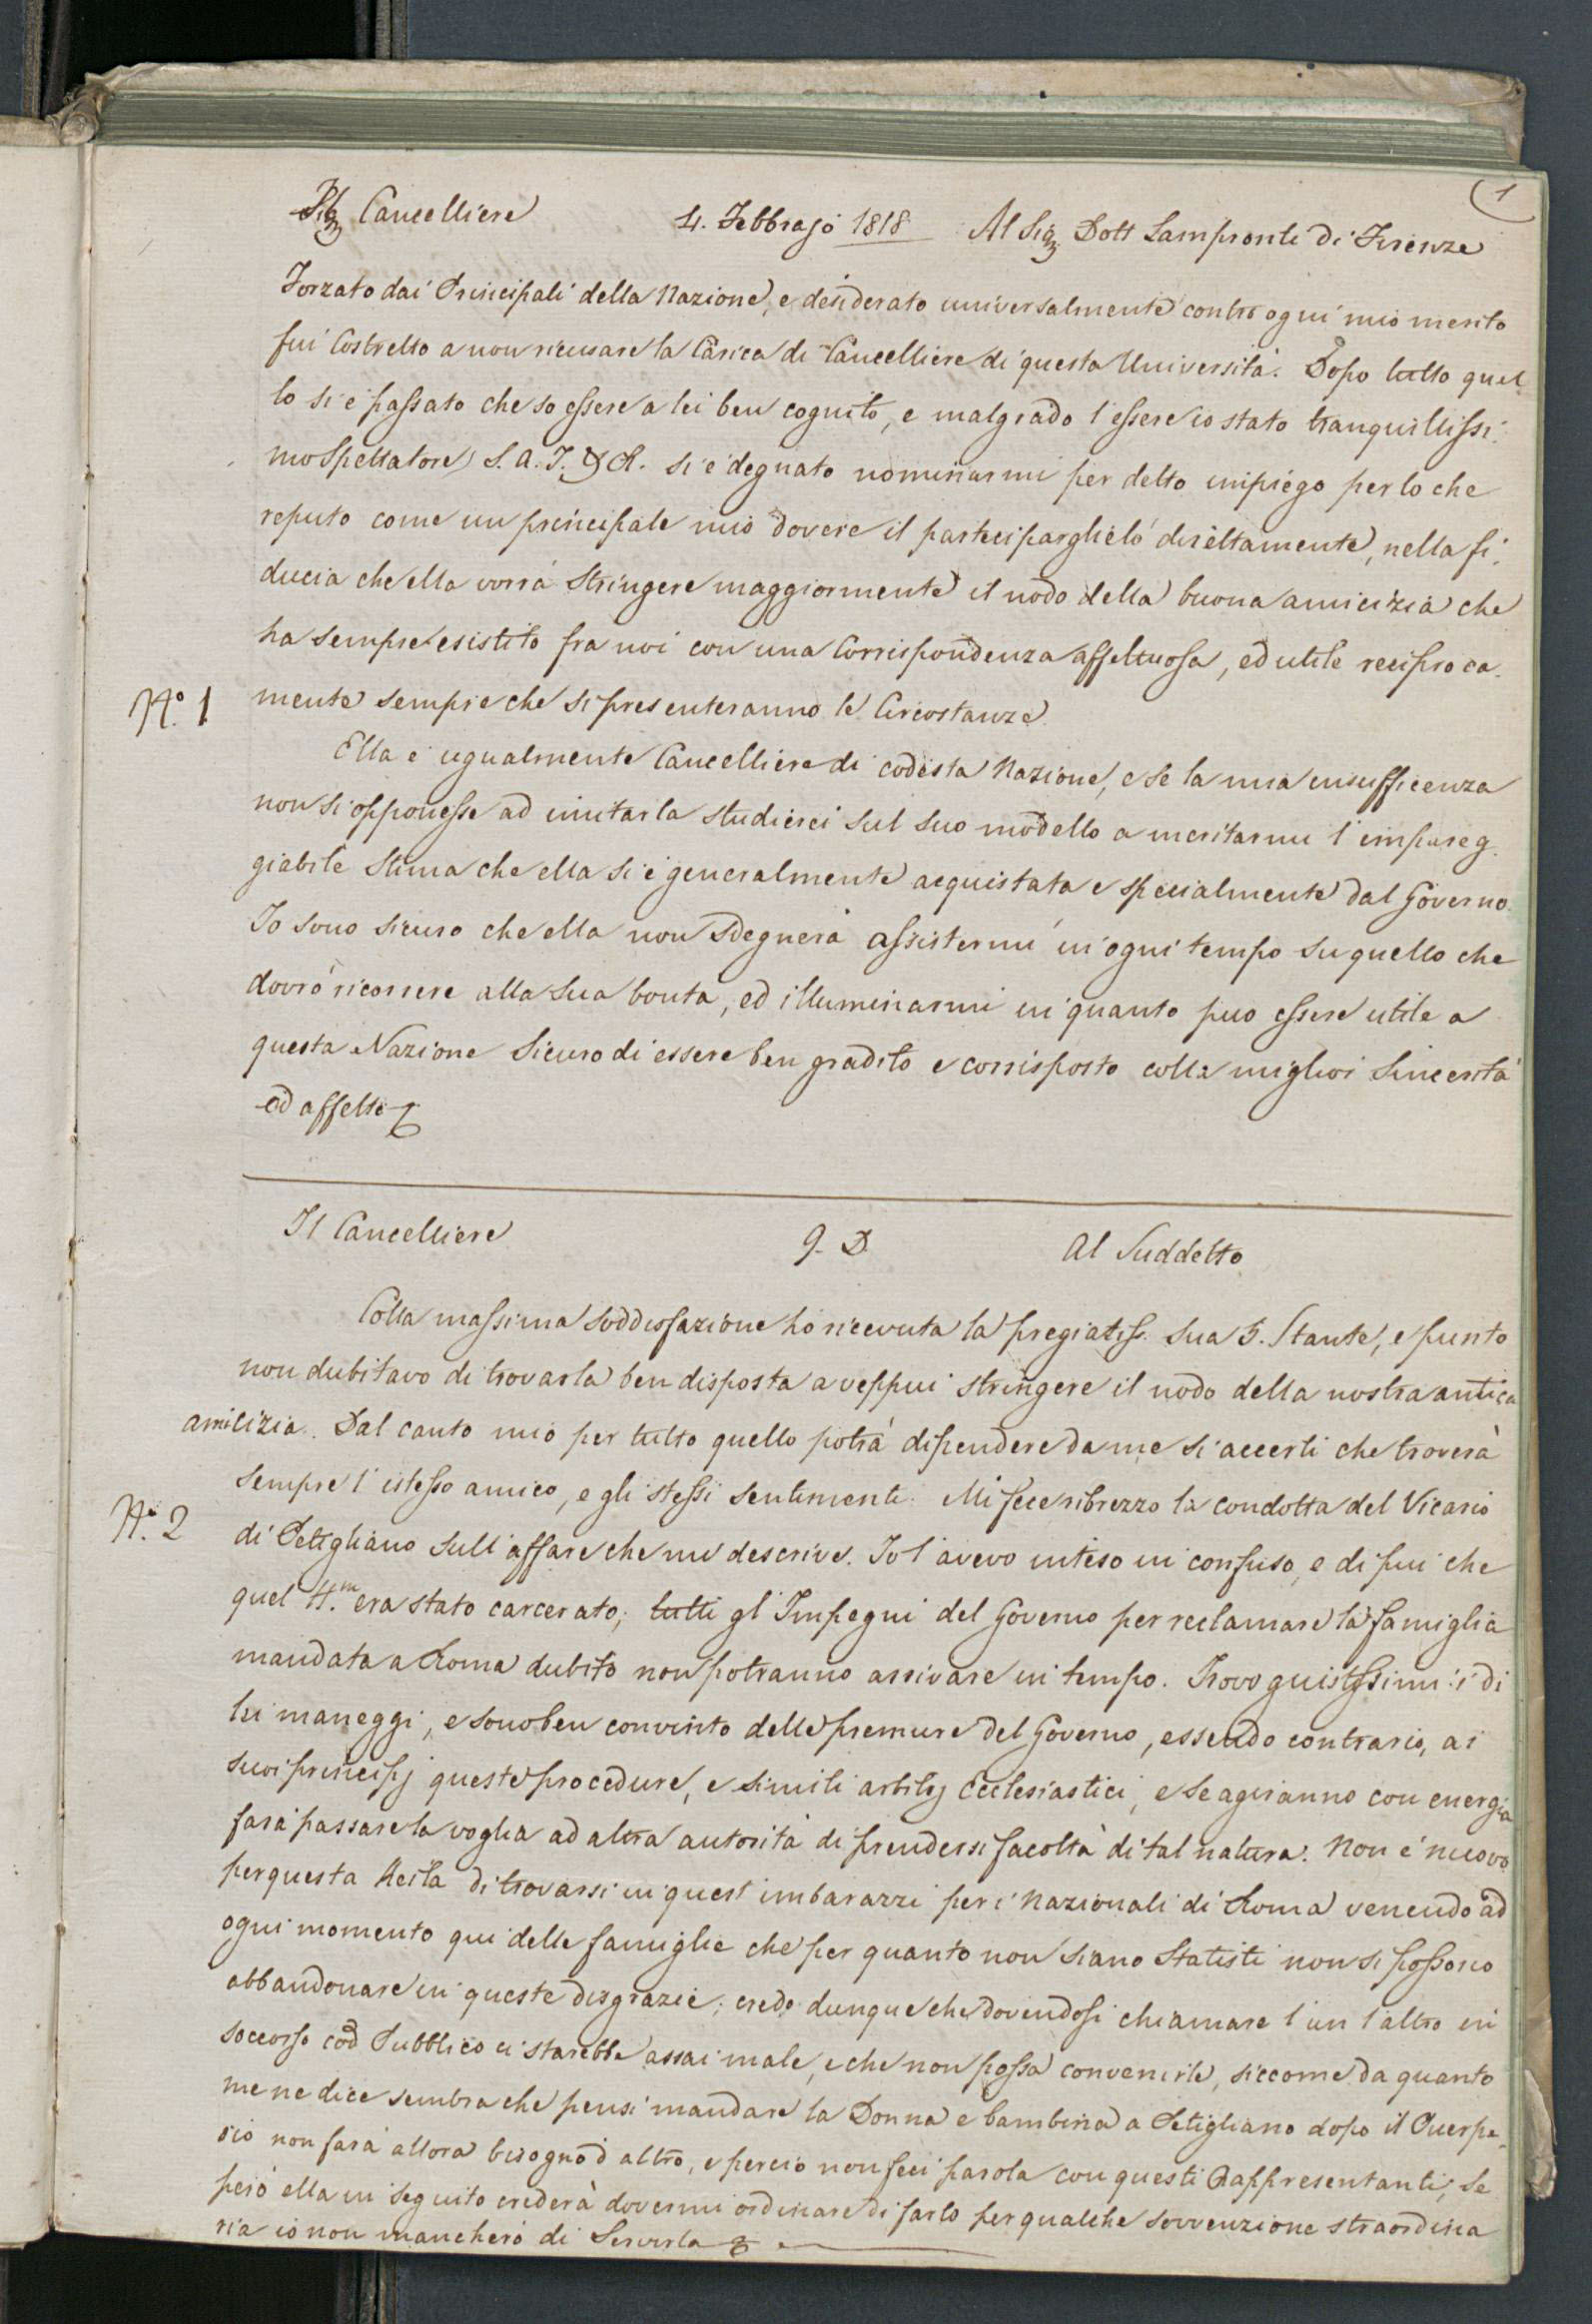 1
Il Cancelliere 4. Febbrajo 1818 Al Sig Dott Lampronti di Firenze
Forzato dai Principali della Nazione, e desiderato universalmente contro ogni mio merito
fui Costretto a non ricusare la Carica di Cancelliere di questa Università. Dopo tutto quel
lo si è passato che so essere a lei ben cognito, e malgrado l'essere io stato tranquillissi:
mo Spettatore S. A. I. & R. si è degnato nominarmi per detto impiego per lo che
reputo come un principale mio dovere il parteciparglielo direttamente, nella fi:
ducia che ella vorrà Stringere maggiormente il nodo della buona amicizia che
ha sempre esistito fra noi con una Corrispondenza affettuosa, ed utile reciproca.
Nº. 1 mente sempre che si presenteranno le Circostanze.
Ella è ugualmente Cancelliere di codesta Nazione, e se la mia insufficenza
non si opponesse ad imitarla studierei sul suo modello a meritarmi l'impareg.
giabile Stima che ella si è generalmente acquistata e specialmente dal Governo.
Io sono sicuro che ella non sdegnerà assistermi in ogni tempo su quello che
dovrò ricorrere alla sua bontà, ed illuminarmi in quanto puo essere utile a
questa Nazione Sicuro di essere ben gradito e corrisposto colla miglior Sincerità
ed affetto
Il Cancelliere 9. D Al Suddetto
Colla massima soddisfazione ho ricevuta la pregiatiss. sua 5. Stante, e punto
non dubitavo di trovarla ben disposta a veppiù stringere il nodo della nostra antica
amicizia. Dal canto mio per tutto quello potrà dipendere da me si accerti che troverà
sempre l'istesso amico, e gli stessi sentimenti. Mi fece ribrezzo la condotta del Vicario
Nº. 2 di Petigliano sull'affare che mi descrive. Io l'avevo inteso in confuso, e di piu che
quel H.m era stato carcerato; tutti gl'Impegni del Governo per reclamare la famiglia
mandata a Roma dubito non potranno arrivare in tempo. Trovo guistissimi i di
lei maneggi, e sono ben convinto delle premure del Governo, essendo contrario, ai
suoi principj queste procedure, e simili arbitrj Ecclesiastici, e se agiranno con energia
farà passare la voglia ad altra autorità di prendersi facoltà di tal natura. Non è nuovo
per questa di trovarsi in quest imbarazzi per i Nazionali di Roma venendo ad
ogni momento qui delle famiglie che per quanto non siano Statisti non si possono
abbandonare in queste disgrazie; credo dunque che dovendosi chiamare l'un l'altro in
soccorso cod Pubblico ci starebbe assai male, e che non possa convenirle, siccome da quanto
me ne dice sembra che pensi mandare la Donna e bambina a Petigliano dopo il Puerpe.
rio non farà allora bisogno d'altro, e percio non feci parola con questi Rappresentanti; se
però ella in seguito crederà dovermi ordinare di farlo per qualche sovvenzione straordina
ria io non mancherò di Servirla